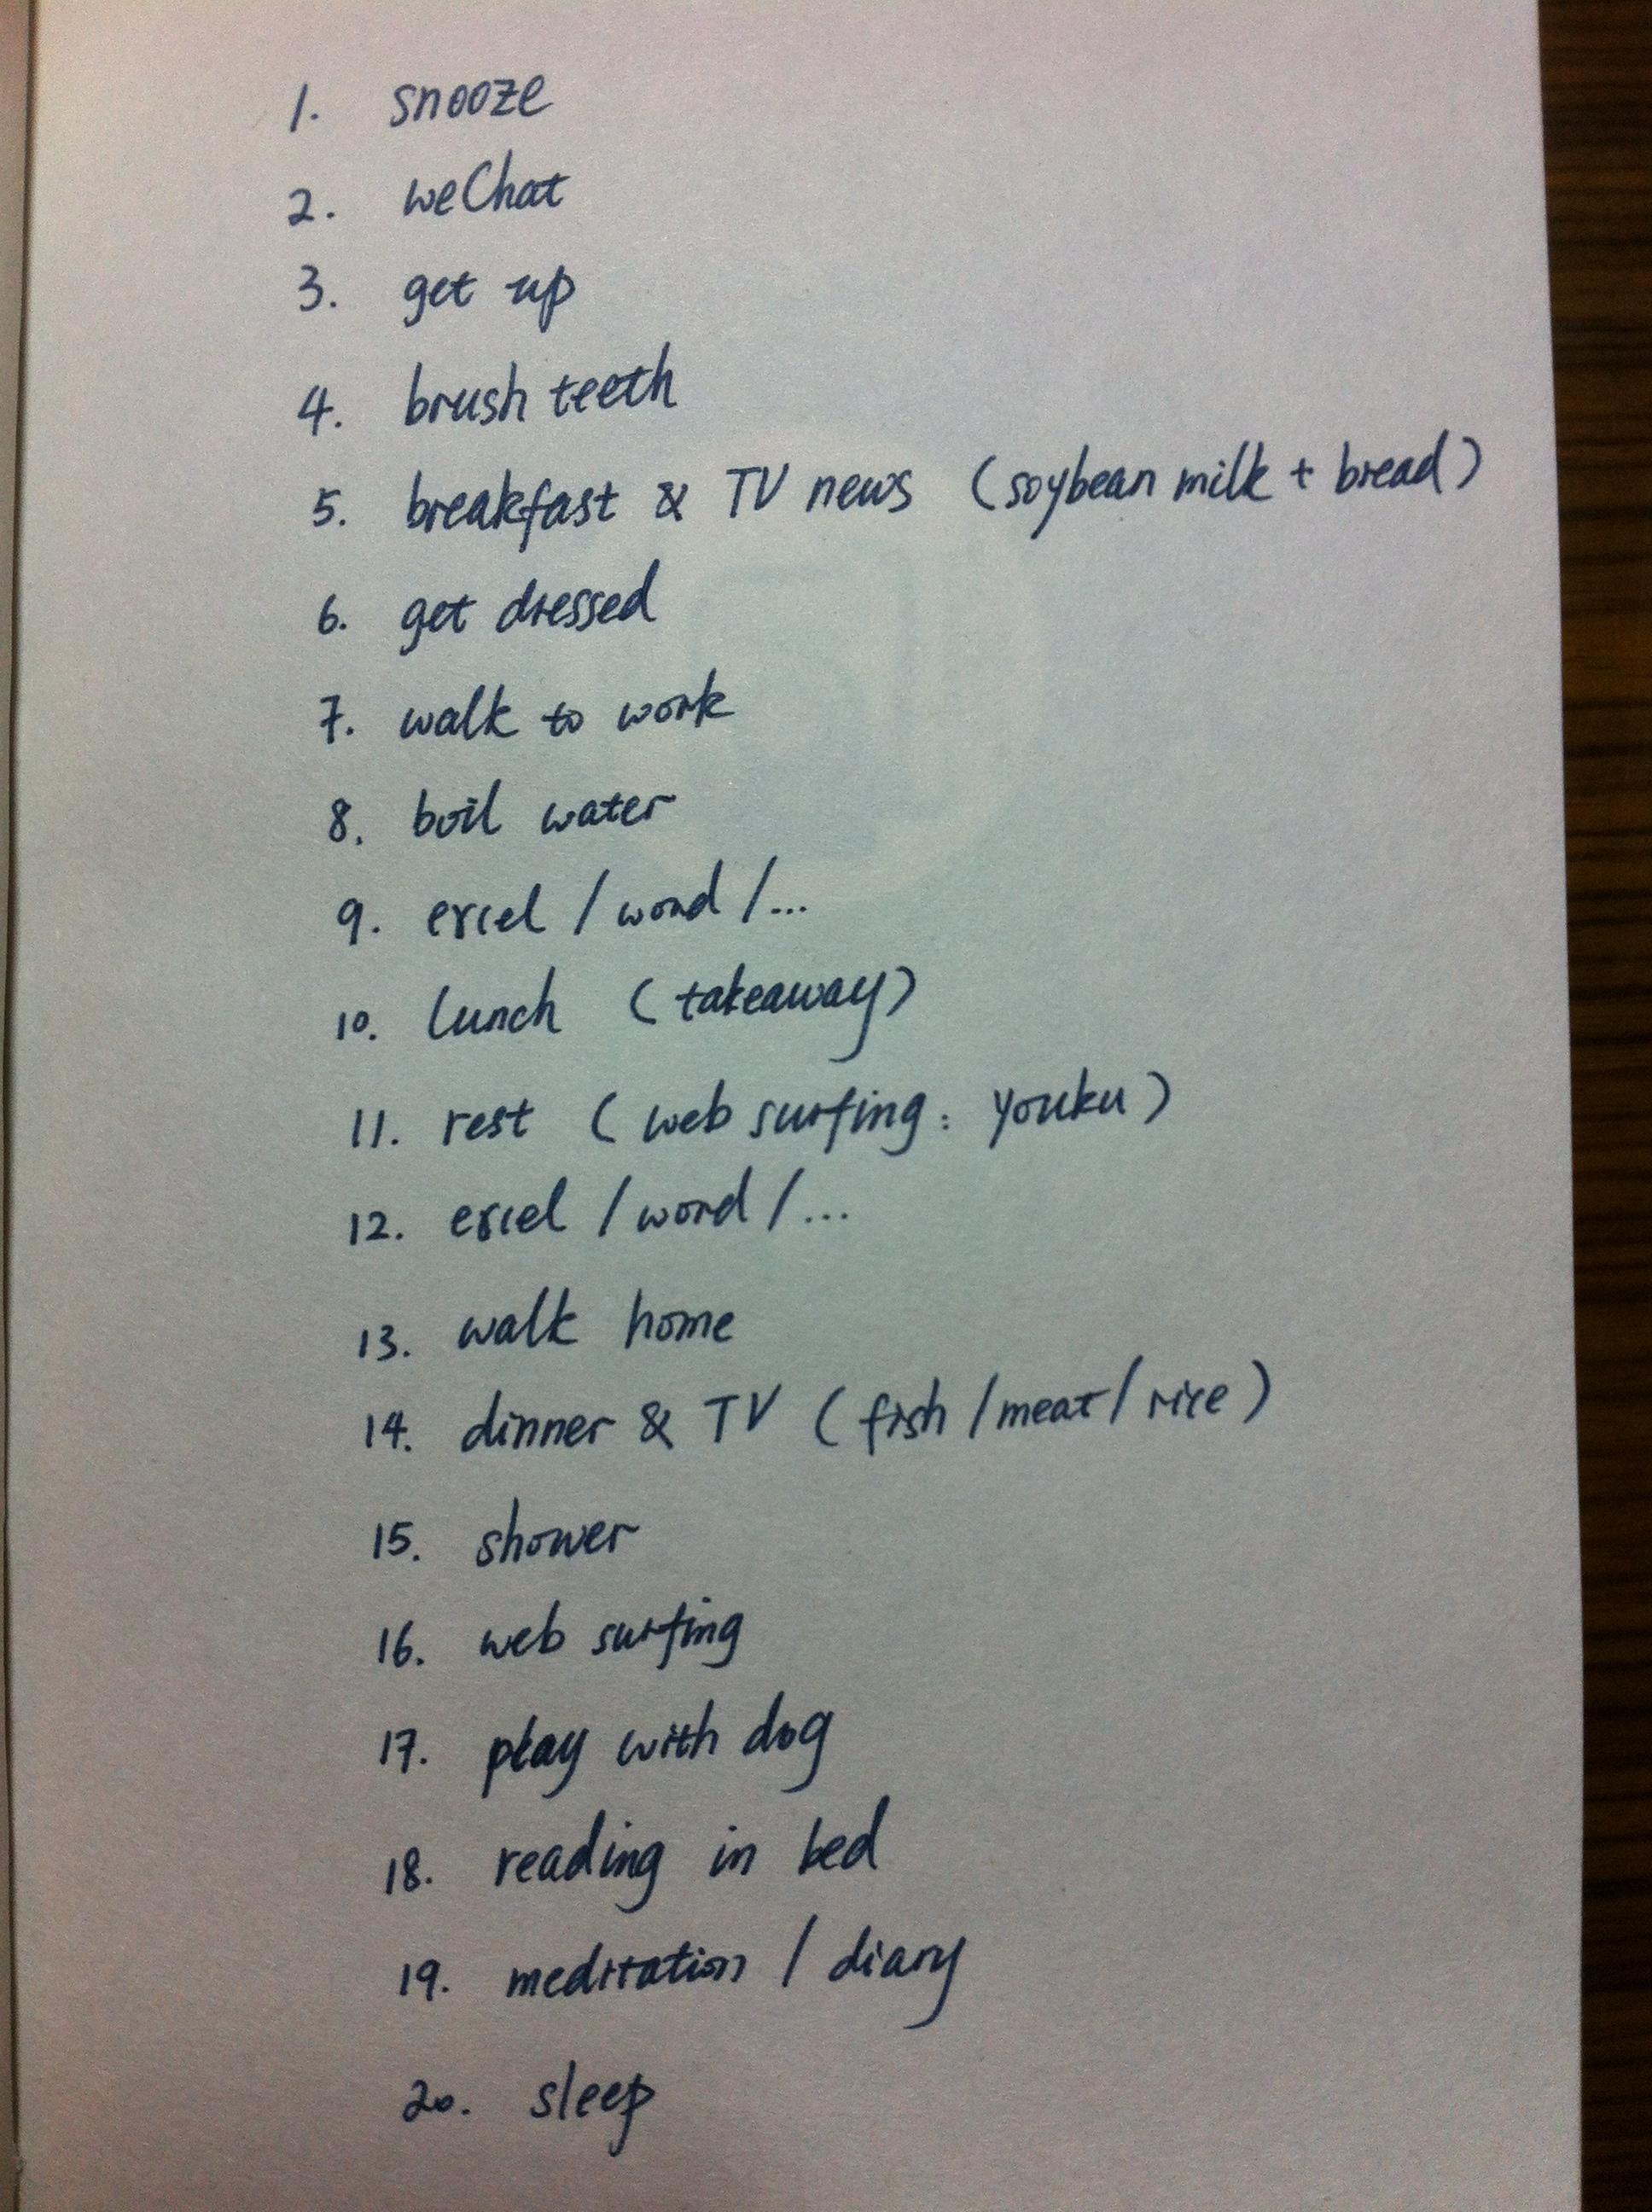 1. snooze
2. weChat
3. get up
4. brush teeth
5. breakfast & TV news (soybean milk + bread)
6. get dressed
7. walk to work
8. boil water
9. excel / word / ...
10. lunch (takeaway)
11. rest (web surfing: youku)
12. excel / word / ...
13. walk home
14. dinner & TV (fish / meat / rice)
15. shower
16. web surfing
17. play with dog
18. reading in bed
19. meditation / diary
20. sleep